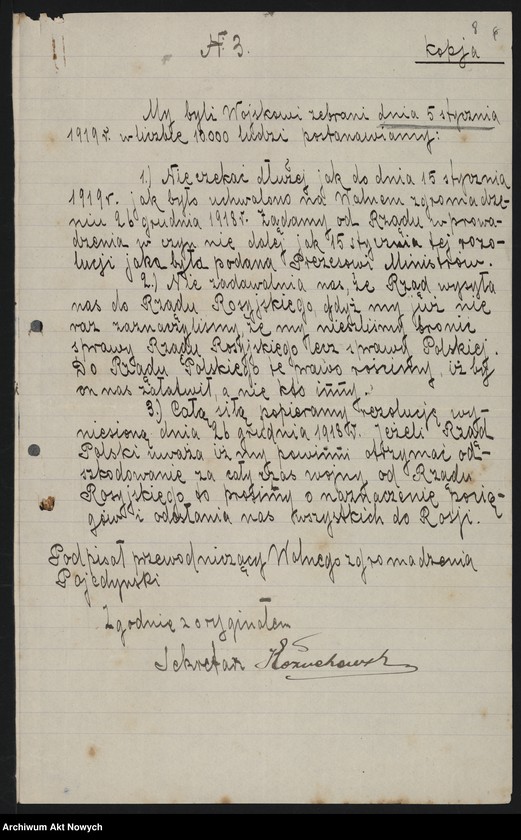 8 8
N. 3.
kopja
My byli Wojskowi zebrani dnia 5 stycznia
1919 r. w liczbie 10000 ludzi postanawiamy:
1.) Nie czekać dłużej jak do dnia 15 stycznia
1919 r. jak było uchwalono na Walnem zgromadze-
niu 26 grudnia 1918 r. Żądamy od Rządu wprowa-
dzenia w czyn nie dalej jak 15 stycznia tej rezo-
lucji jaka była podana Prezesowi Ministrów.
2.) Nie zadawalnia nas, że Rząd wysyła
nas do Rządu Rosyjskiego, gdyż my już nie
raz zaznaczyliśmy że my nieszliśmy bronić
sprawy Rządu Rosyjskiego lecz sprawy Polskiej.
Do Rządu Polskiego te prawo rościmy, iż by
on nas załatwił, a nie kto inny.
3.) Całą siłą popieramy rezolucję wy-
niesioną dnia 26 grudnia 1918 r. Jeżeli Rząd
Polski uważa iż my powinni otrzymać od-
szkodowanie za cały czas wojny od Rządu
Rosyjskiego to prosimy o naznaczenie pocią-
gów i odesłania nas wszystkich do Rosji.
Podpisał przewodniczący Walnego zgromadzenia
Pojedynski
Zgodnie z oryginałem
Sekretarz Kożuchowski
Archiwum Akt Nowych